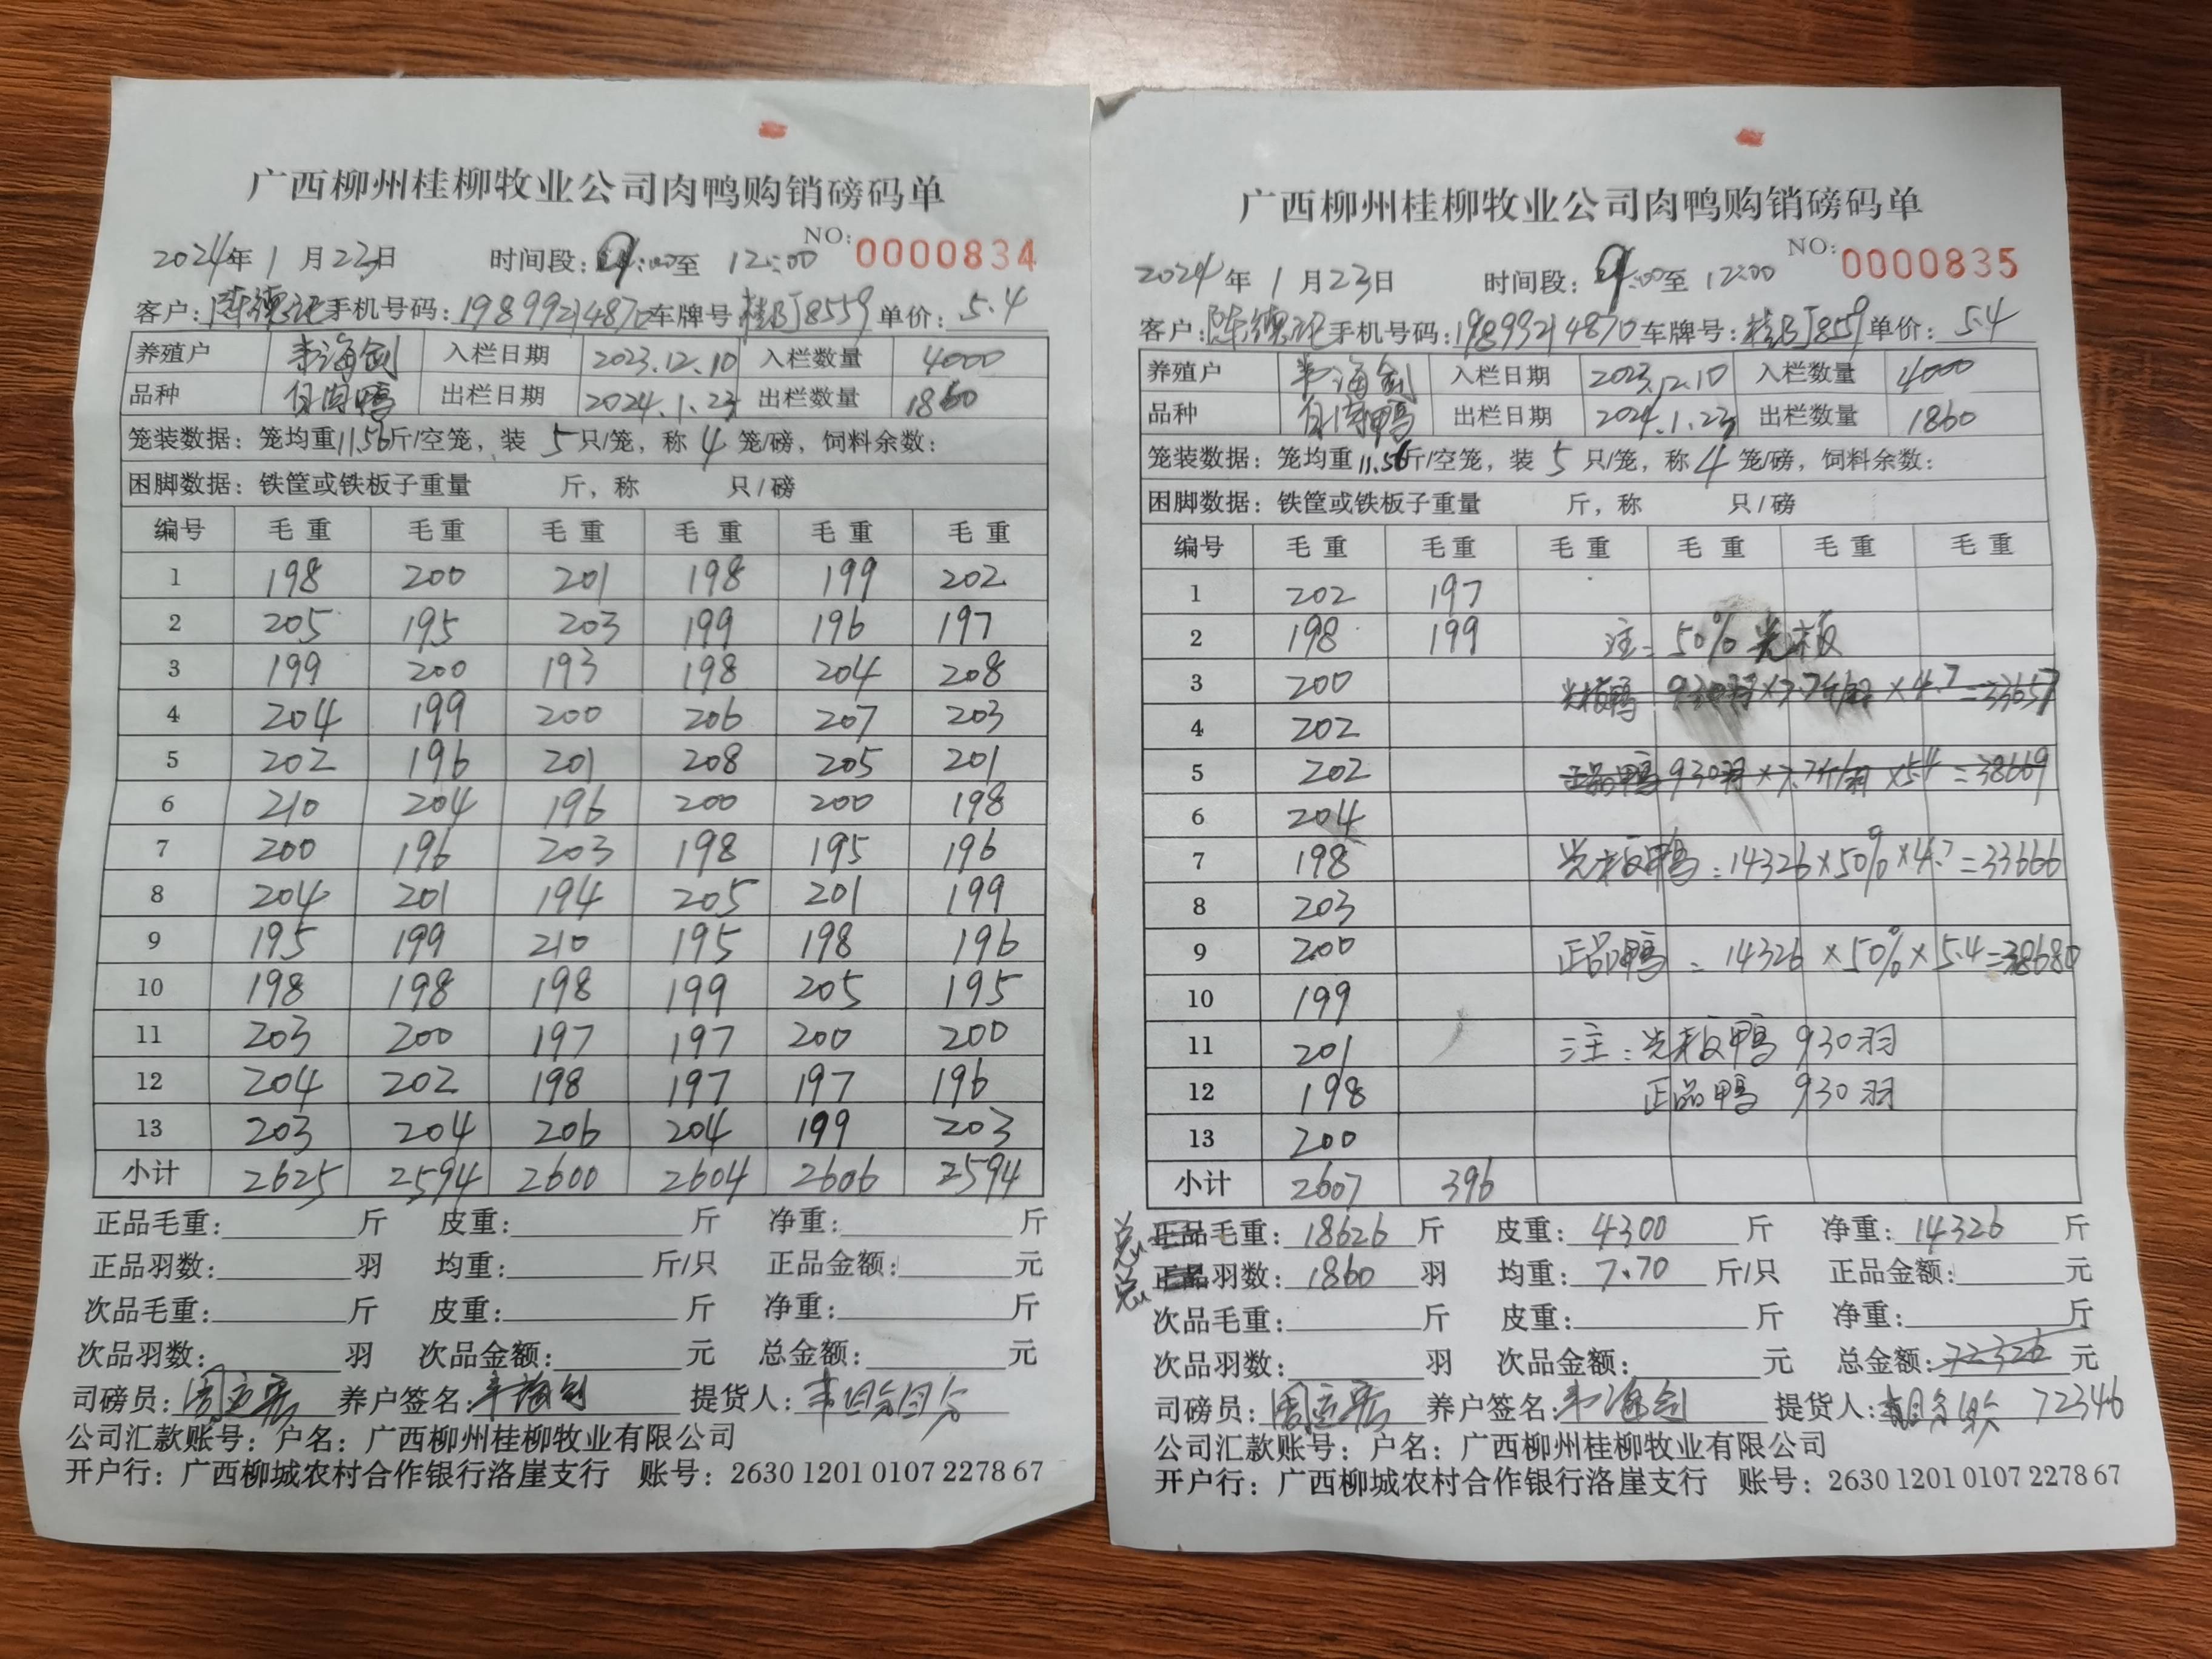 广西柳州桂柳牧业公司肉鸭购销磅码单
NO: 0000834
2024年 1 月 23日 时间段: 9:00至 12:00
客户: 陈德 手机号码: 19899214870 车牌号 桂BJ8559 单价: 5.4
养殖户 韦海剑 入栏日期 2023.12.10 入栏数量 4000
品种 出栏日期 2024.1.23 出栏数量 1860
笼装数据: 笼均重11.56斤/空笼, 装 5 只/笼, 称 4 笼/磅, 饲料余数:
困脚数据: 铁筐或铁板子重量 斤, 称 只/磅
编号 毛重 毛重 毛重 毛重 毛重 毛重
1 198 200 201 198 199 202
2 205 195 203 199 196 197
3 199 200 193 198 204 208
4 204 199 200 206 207 203
5 202 196 201 208 205 201
6 210 204 196 200 200 198
7 200 196 203 198 195 196
8 204 201 194 205 201 199
9 195 199 210 195 198 196
10 198 198 198 199 205 195
11 203 200 197 197 200 200
12 204 202 198 197 197 196
13 203 204 206 204 199 203
小计 2625 2594 2600 2604 2606 2594
正品毛重: 斤 皮重: 斤 净重: 斤
正品羽数: 羽 均重: 斤/只 正品金额: 元
次品毛重: 斤 皮重: 斤 净重: 斤
次品羽数: 羽 次品金额: 元 总金额: 元
司磅员: 养户签名: 韦海剑 提货人:
公司汇款账号: 户名: 广西柳州桂柳牧业有限公司
开户行: 广西柳城农村合作银行洛崖支行 账号: 2630 1201 0107 2278 67
广西柳州桂柳牧业公司肉鸭购销磅码单
NO: 0000835
2024年 1 月 23日 时间段: 9:00至 12:00
客户: 陈德 手机号码: 19899214870 车牌号: 桂BJ8559 单价: 5.4
养殖户 韦海剑 入栏日期 2023.12.10 入栏数量 4000
品种 出栏日期 2024.1.23 出栏数量 1860
笼装数据: 笼均重11.56斤/空笼, 装 5 只/笼, 称 4 笼/磅, 饲料余数:
困脚数据: 铁筐或铁板子重量 斤, 称 只/磅
编号 毛重 毛重 毛重 毛重 毛重 毛重
1 202 197
2 198 199 注: 50% 光板
3 200 光板鸭 930羽×7.7斤/羽×4.7=33657
4 202
5 202 正品鸭 930羽×7.7斤/羽×5.4=38669
6 204
7 198 光板鸭: 14326×50%×4.7=33666
8 203
9 200 正品鸭: 14326×50%×5.4=38680
10 199
11 201 注: 光板鸭 930羽
12 198 正品鸭 930羽
13 200
小计 2607 396
总 正品毛重: 18626 斤 皮重: 4300 斤 净重: 14326 斤
总 正品羽数: 1860 羽 均重: 7.70 斤/只 正品金额: 元
次品毛重: 斤 皮重: 斤 净重: 斤
次品羽数: 羽 次品金额: 元 总金额: 72326 元
司磅员: 养户签名: 韦海剑 提货人: 72346
公司汇款账号: 户名: 广西柳州桂柳牧业有限公司
开户行: 广西柳城农村合作银行洛崖支行 账号: 2630 1201 0107 2278 67